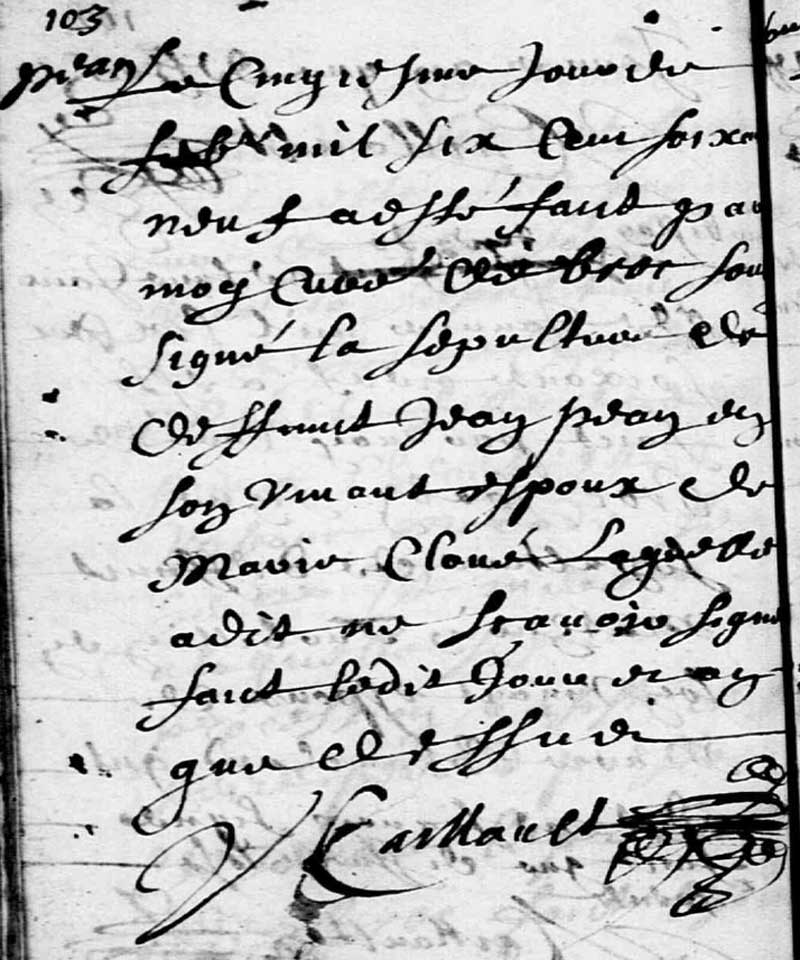 103
pean Le Cinqiesme Jour de
febr mil six Cent soixa
neuf a esté faict par
moy Curé de broc sou
signé la sepulture de
deffunct Jean pean en
son vivant espoux de
Marie Cloué Laquelle
a dit ne scavoir signe
faict ledit Jour et an
que dessus
Caillault